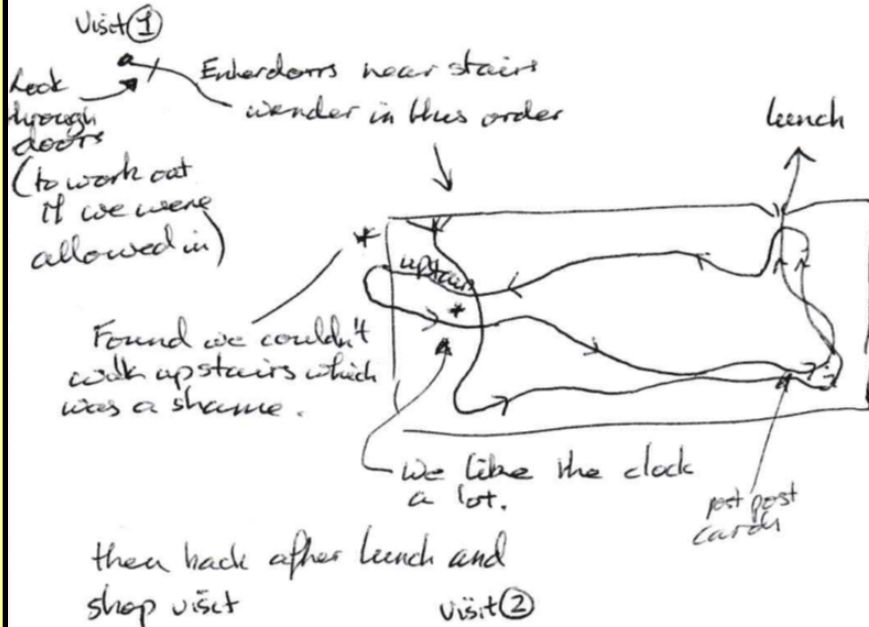 Visit 1
Look
through
doors
(to work out
if we were
allowed in)
Enter doors near stairs
wander in this order
lunch
upstairs
Found we couldn't
walk upstairs which
was a shame.
We like the clock
a lot.
post post
cards
then back after lunch and
shop visit
Visit 2